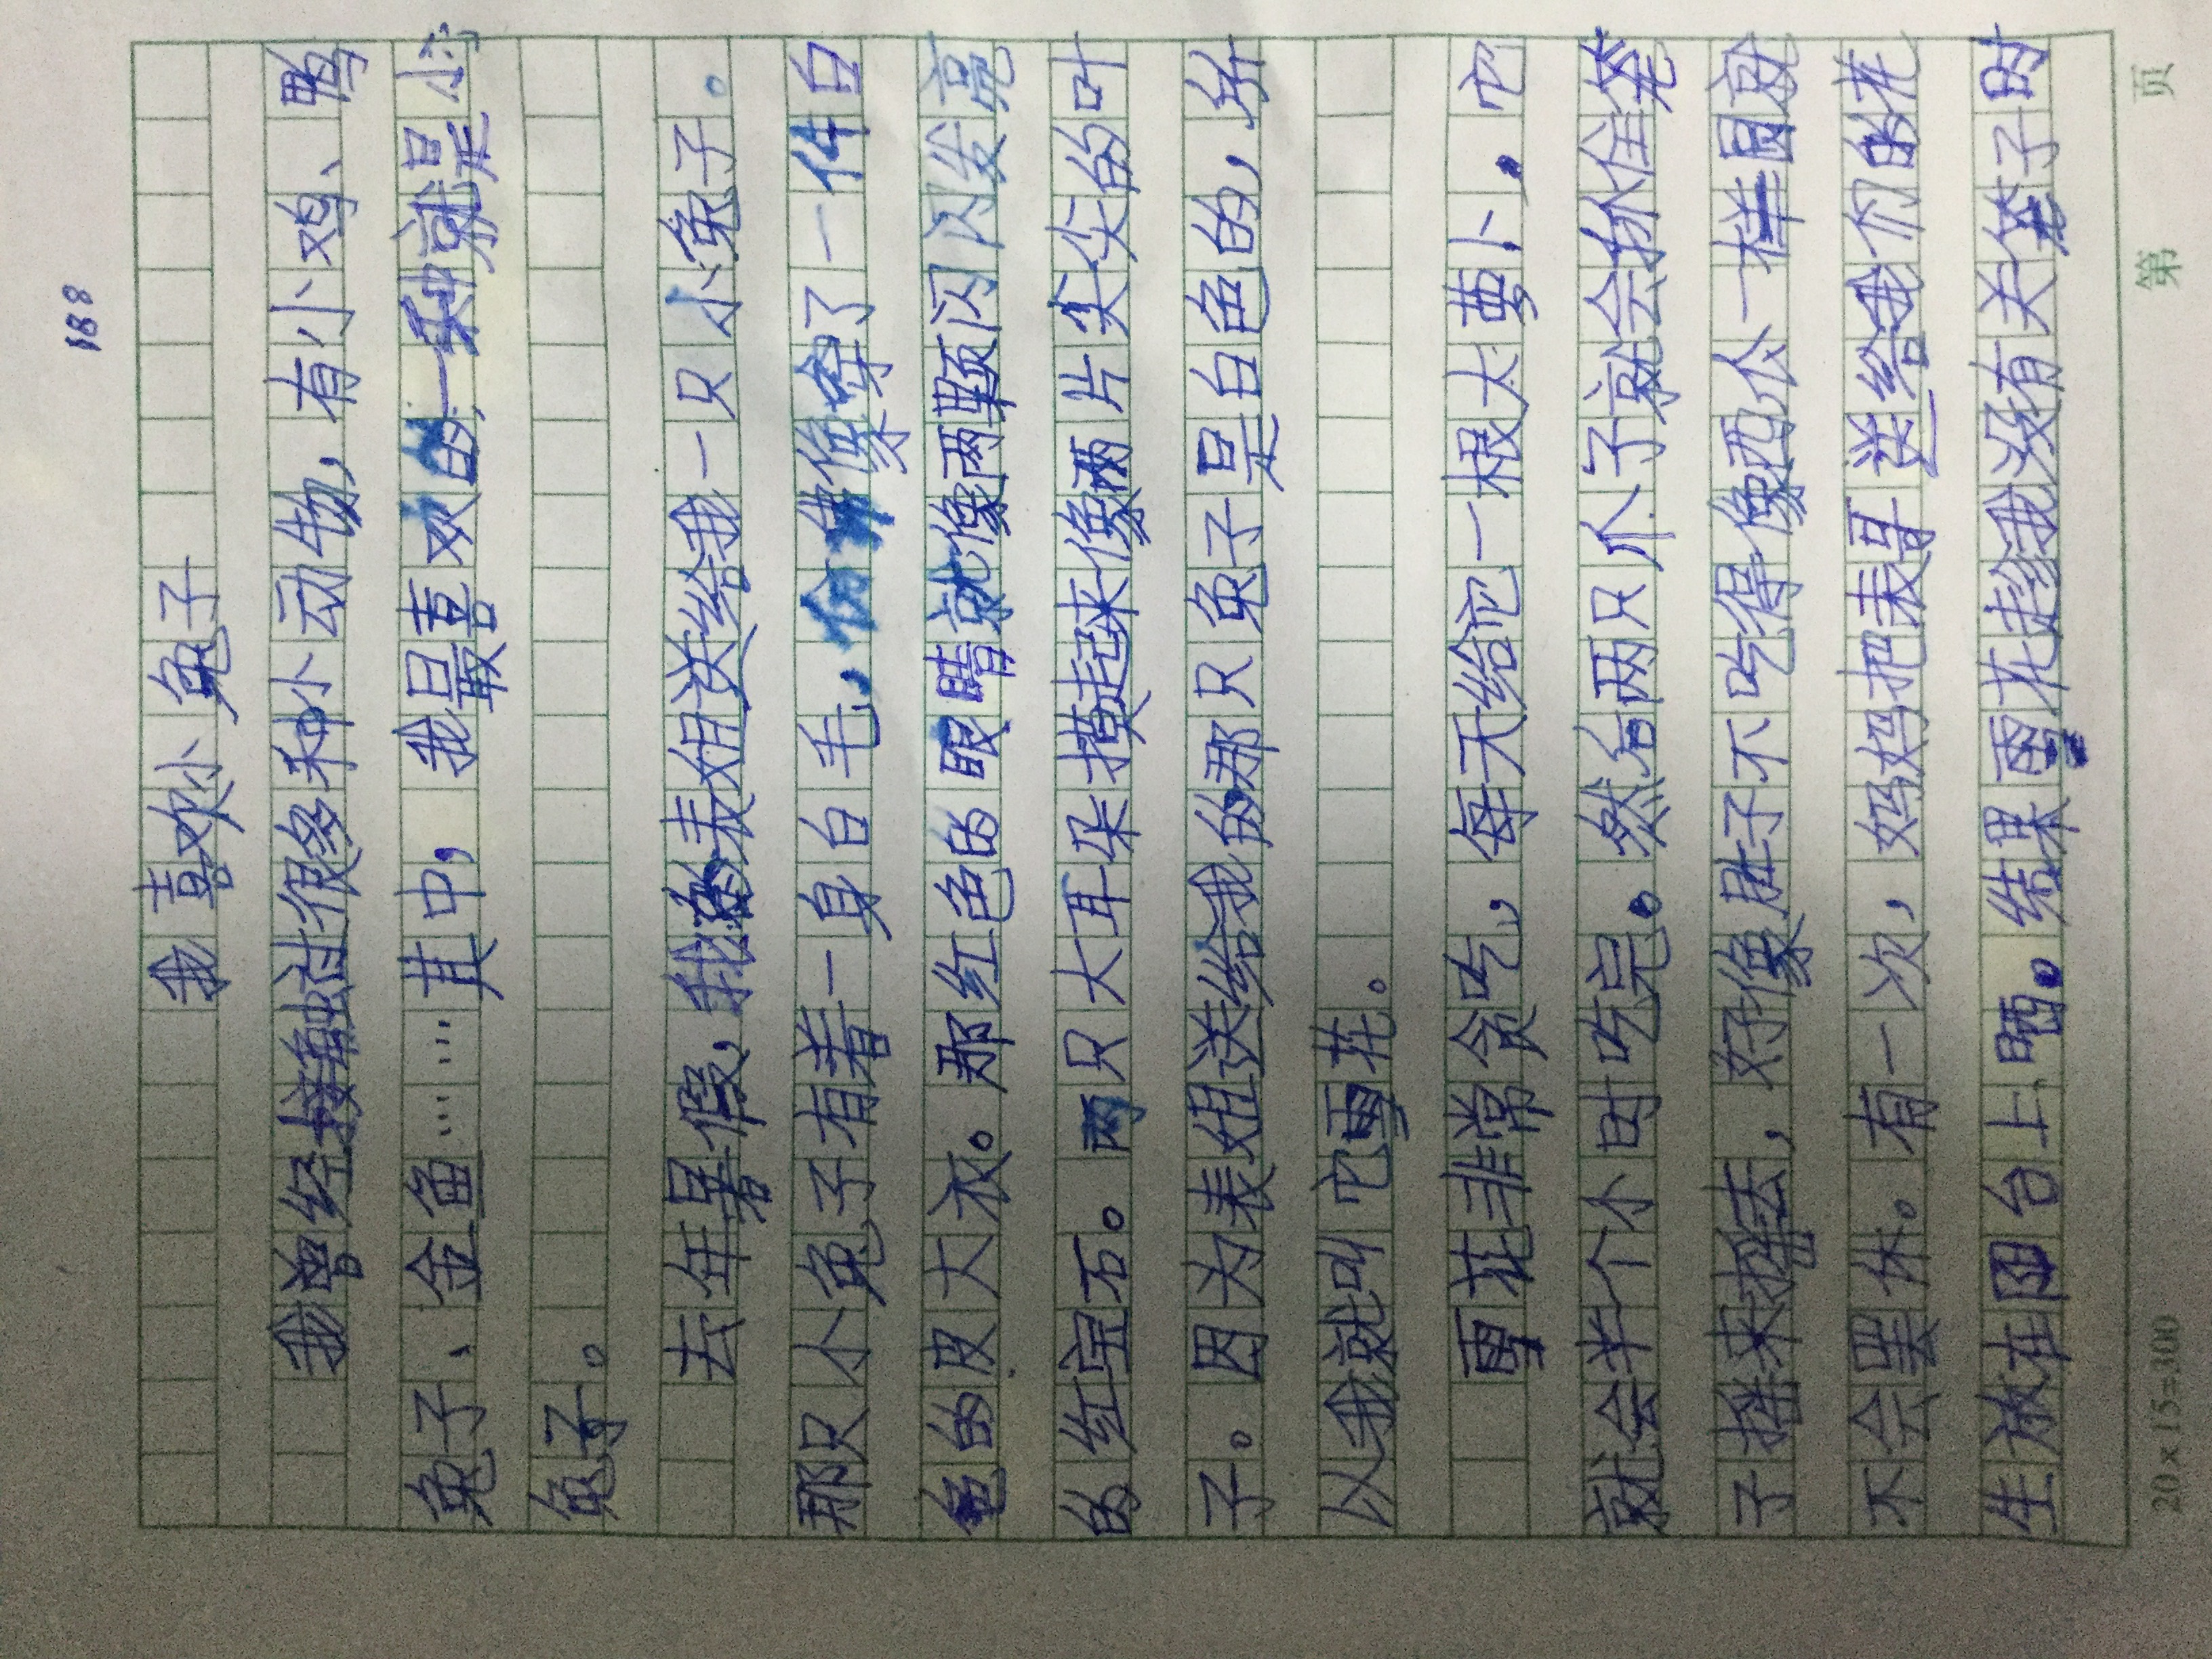 188
我喜欢小兔子
我曾经接触过很多种小动物，有小鸡、鸭
兔子、金鱼……其中，我最喜欢的一种就是小
兔子。
去年暑假，我的表姐送给我一只小兔子。
那只小兔子有着一身白毛，仿佛像穿了一件白
色的皮大衣。那红色的眼睛就像两颗闪闪发亮
的红宝石。两只大耳朵摸起来像两片尖尖的叶
子。因为表姐送给我的那只兔子是白色的，所
以我就叫它雪花。
雪花非常贪吃，每天给它一根大萝卜，它
就会半个小时吃完。然后两只爪子就会抓住笼
子摇来摇去，好像肚子不吃得像西瓜一样圆就
不会罢休。有一次，妈妈把表哥送给我们的花
生放在阳台上晒。结果雪花趁我没有关笼子时
20×15=300 第 页